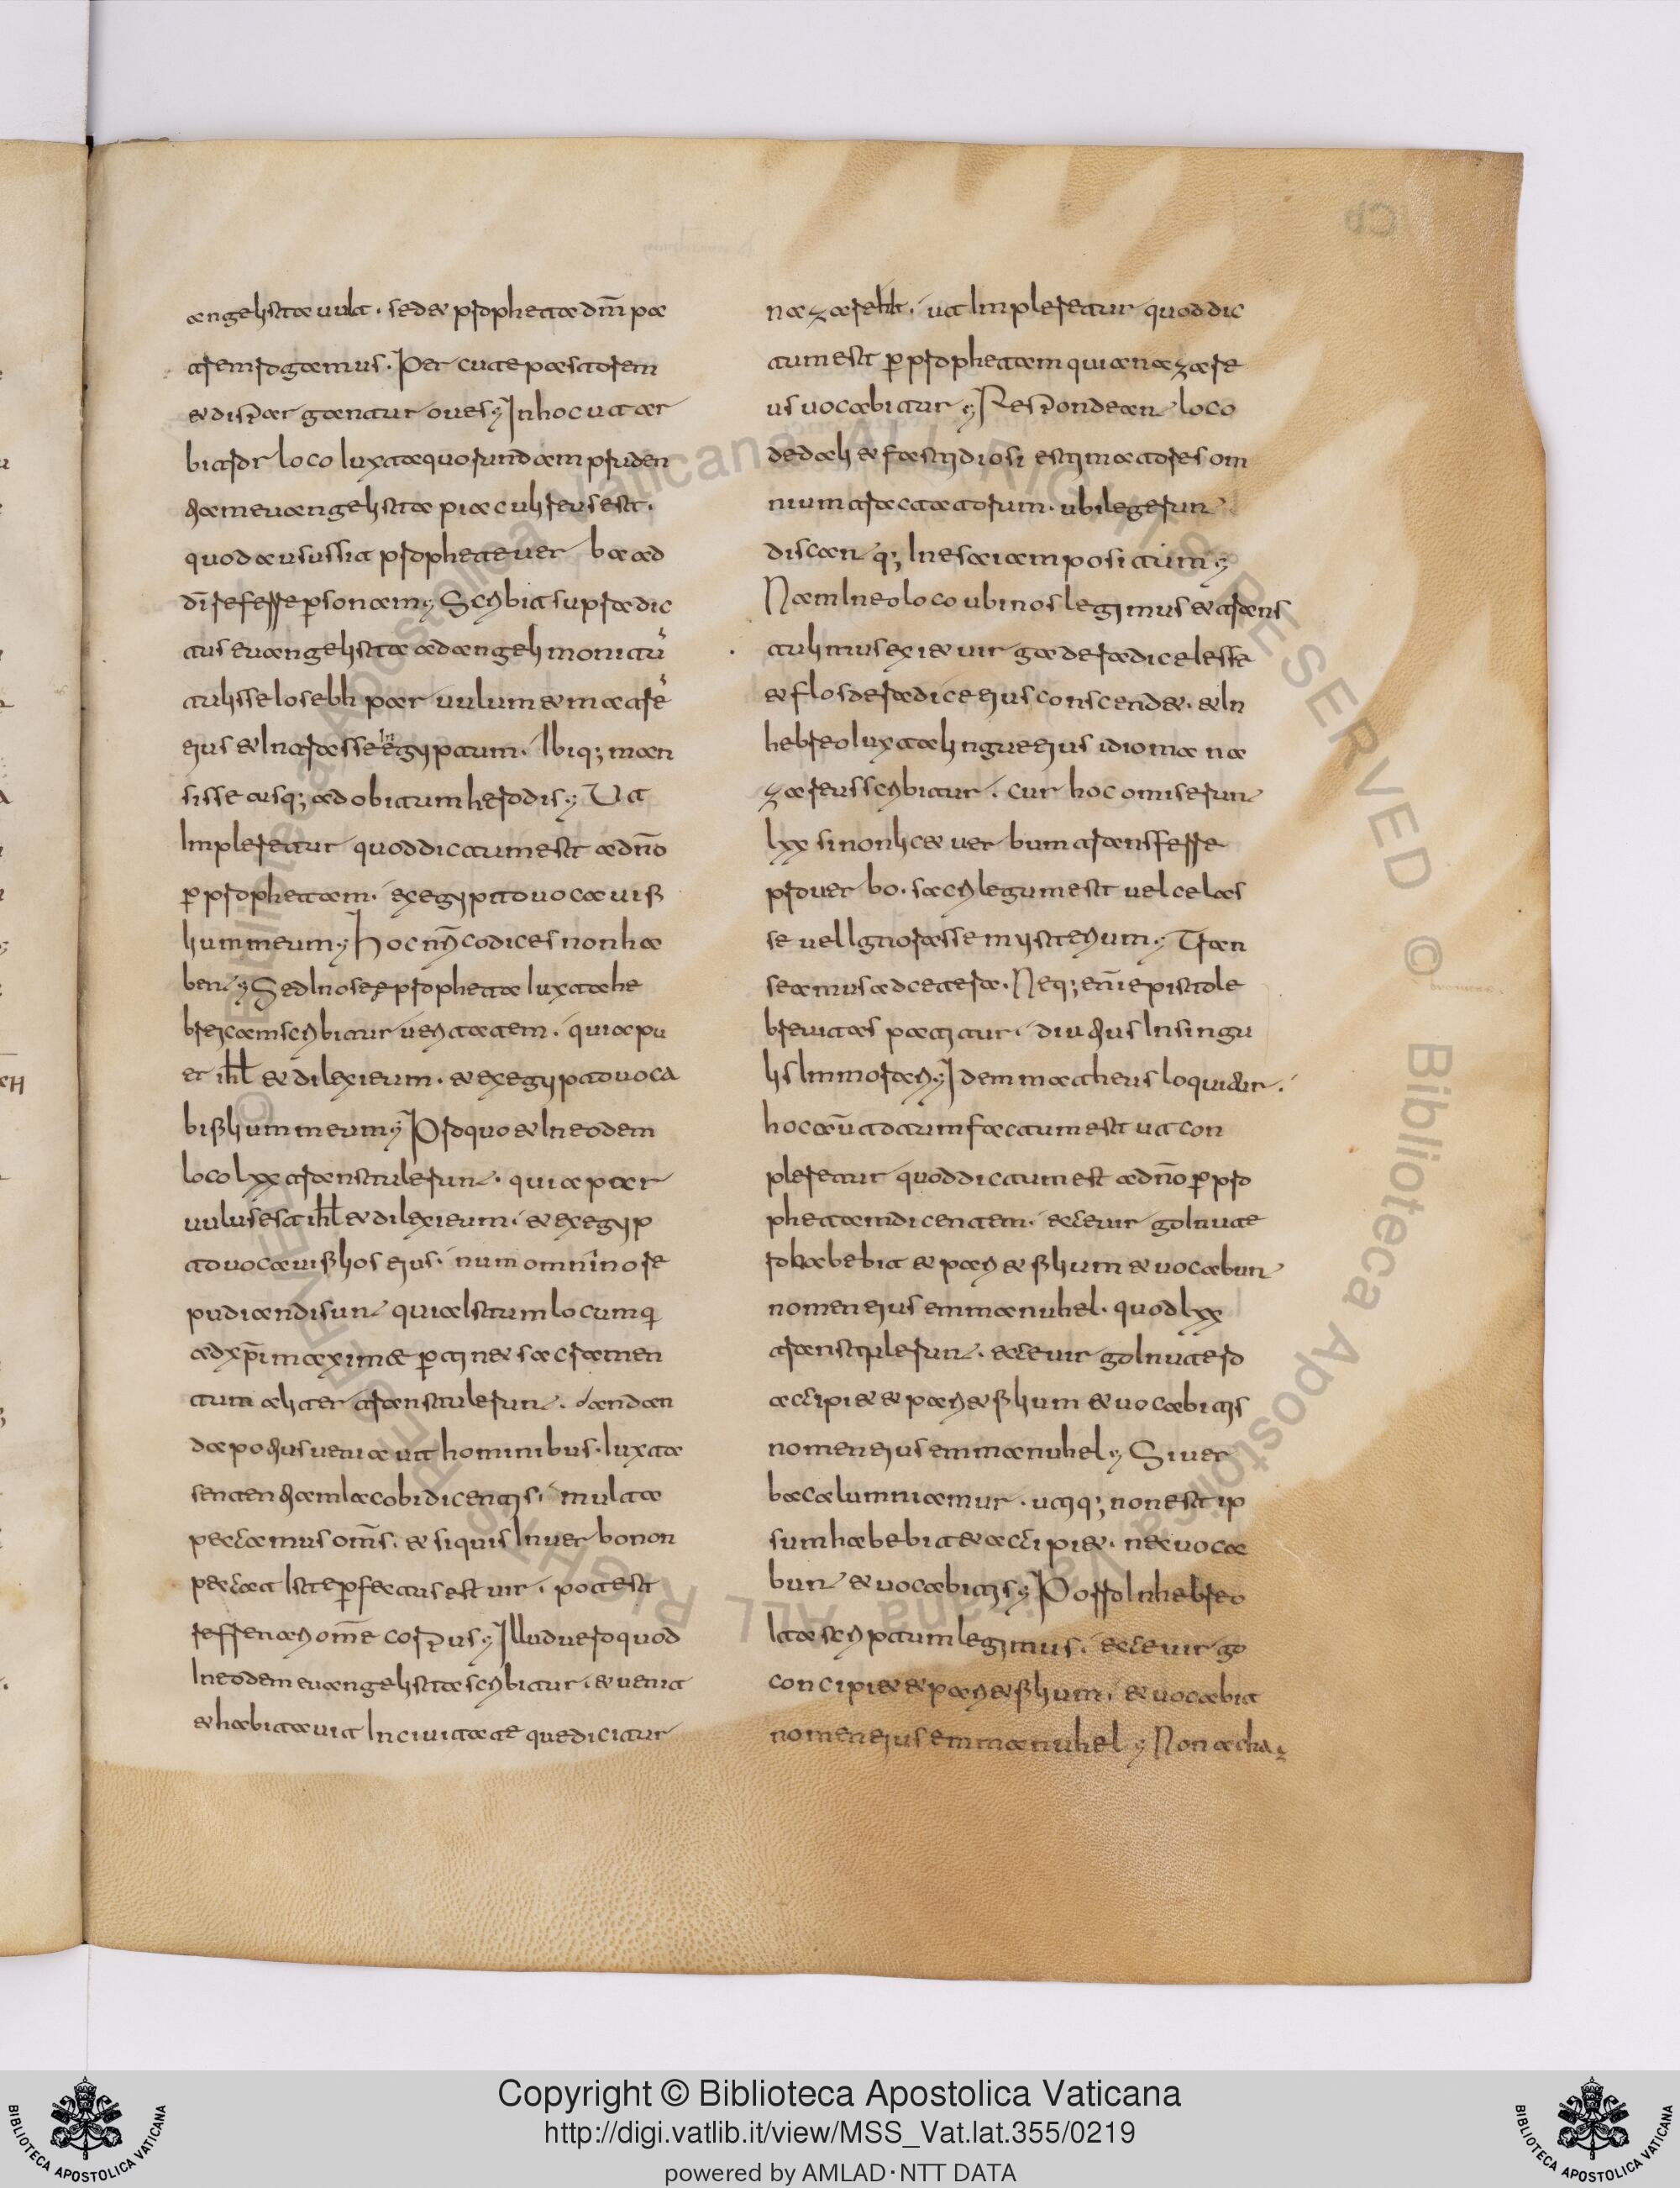 angelista uult. sed & propheta dn̄m pa
trem rogamus. Per cute pastorem
& dispargantur oues; In hoc ut ar
bitror loco luxta quorundam pruden
tiam euangelista piaculi reus est.
quod ausus sit prophete uerba ad
dī referre ꝑsonam; Scribit supradic
tus euangelista ad angeli monitū
tulisse Ioseph paruulum & matrē
eius & Intrasse In egyptum. Ibiq; man
sisse usq; ad obitum herodis; Ut
Impleretur quod dictum est a dn̄o
ꝑ prophetam. ex egypto uocaui fi
lium meum; Hoc nr̄i codices non ha
bent; Sed In osee propheta luxta he
breicam scribitur ueritatem. quia pu
er isrl & dilexi eum. & ex egypto uoca
bi filium meum; Pro quo & In eodem
loco lxx transtulerunt. quia par
uulus est isrl & dilexi eum. & ex egyp
to uocaui filios eius. num omnino re
pudiandi sunt qui alstum locumq
ad xp̄i maxime ꝑtinet sacramen
tum aliter transtulerunt. dandan
da potius uenia ut hominibus. luxta
sententiam Iacobi dicentis. multa
peccamus om̄s. & si quis In uerbo non
peccat Iste ꝑfectus est uir. potest
refrenari om̄e corpus; Illud uero quod
In eodem euangelista scribitur. & uenit
& habitauit In ciuitate que dicitur
nazareth. ut Impleretur quod dic
tum est ꝑ prophetam quia nazare
us uocabitur; Respondeant loco
dedali & fastidiosi estimatores om
nium tractatorum. ubi legerunt
discant q; In esaia positum;
Nam In eo loco ubi nos legimus & trans
tulimus exi& uirga de radice Iesse
& flos de radice eius conscend&. & In
hebreo luxta lingue eius idioma na
zareus scribitur. cur hoc omiserunt
lxx si non lic& uerbum transferre
pro uerbo. sacrilegum est uel celas
se uel Ignorasse mysterium; Tran
seamus ad cetera. Neq; eni epistole
breuitas patitur. diutius In singu
lis Immorari; Idem matheus loquitur.
hoc aū totum factum est ut con
pleretur quod dictum est a dn̄o ꝑ pro
phetam dicentem. ecce uirgo In ute
ro habebit & pari& filium & uocabunt
nomen eius emmanuhel. quod lxx
transtulerunt. ecce uirgo In utero
accipi& & pari& filium & uocabitis
nomen eius emmanuhel; Si uer
ba calumniamur. utiq; non est ip
sum habebit & accipi&. nec uoca
bunt & uocabitis; Porro In hebreo
Ita scriptum legimus. ecce uirgo
concipi& & pari& filium. & uocabit
nomen eius emmanuhel; Non acha
Copyright © Biblioteca Apostolica Vaticana
http://digi.vatlib.it/view/MSS_Vat.lat.355/0219
powered by AMLAD·NTT DATA
BIBLIOTECA APOSTOLICA VATICANA
BIBLIOTECA APOSTOLICA VATICANA